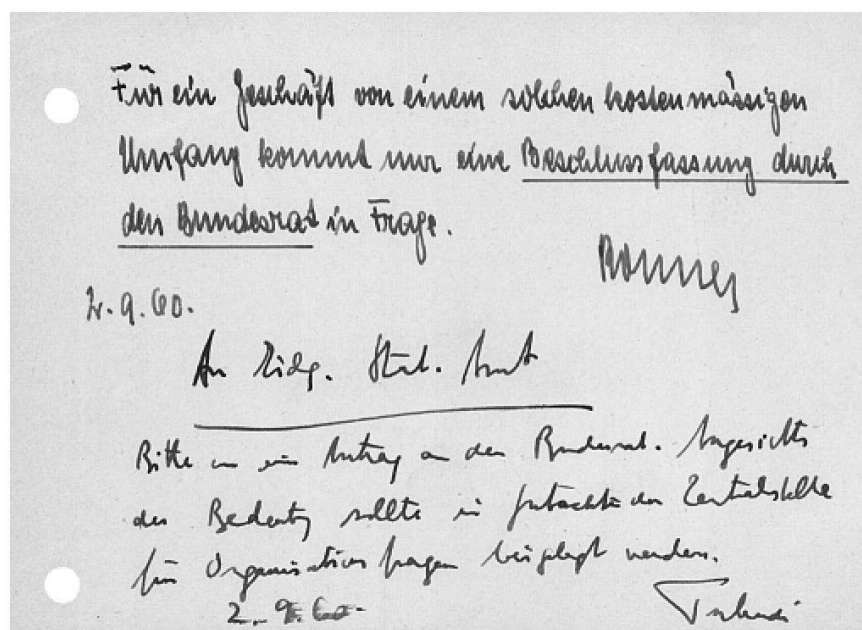 Für ein Geschäft von einem solchen kostenmässigen
Umfang kommt nur eine Beschlussfassung durch
den Bundesrat in Frage.
2.9.60.
An Eidg. Stat. Amt
Bitte um ein Antrag an den Bundesrat. Angesichts
der Bedeutg sollte ein Gutachten der Zentralstelle
für Organisationsfragen beigelegt werden.
2.9.60.
Tschudi